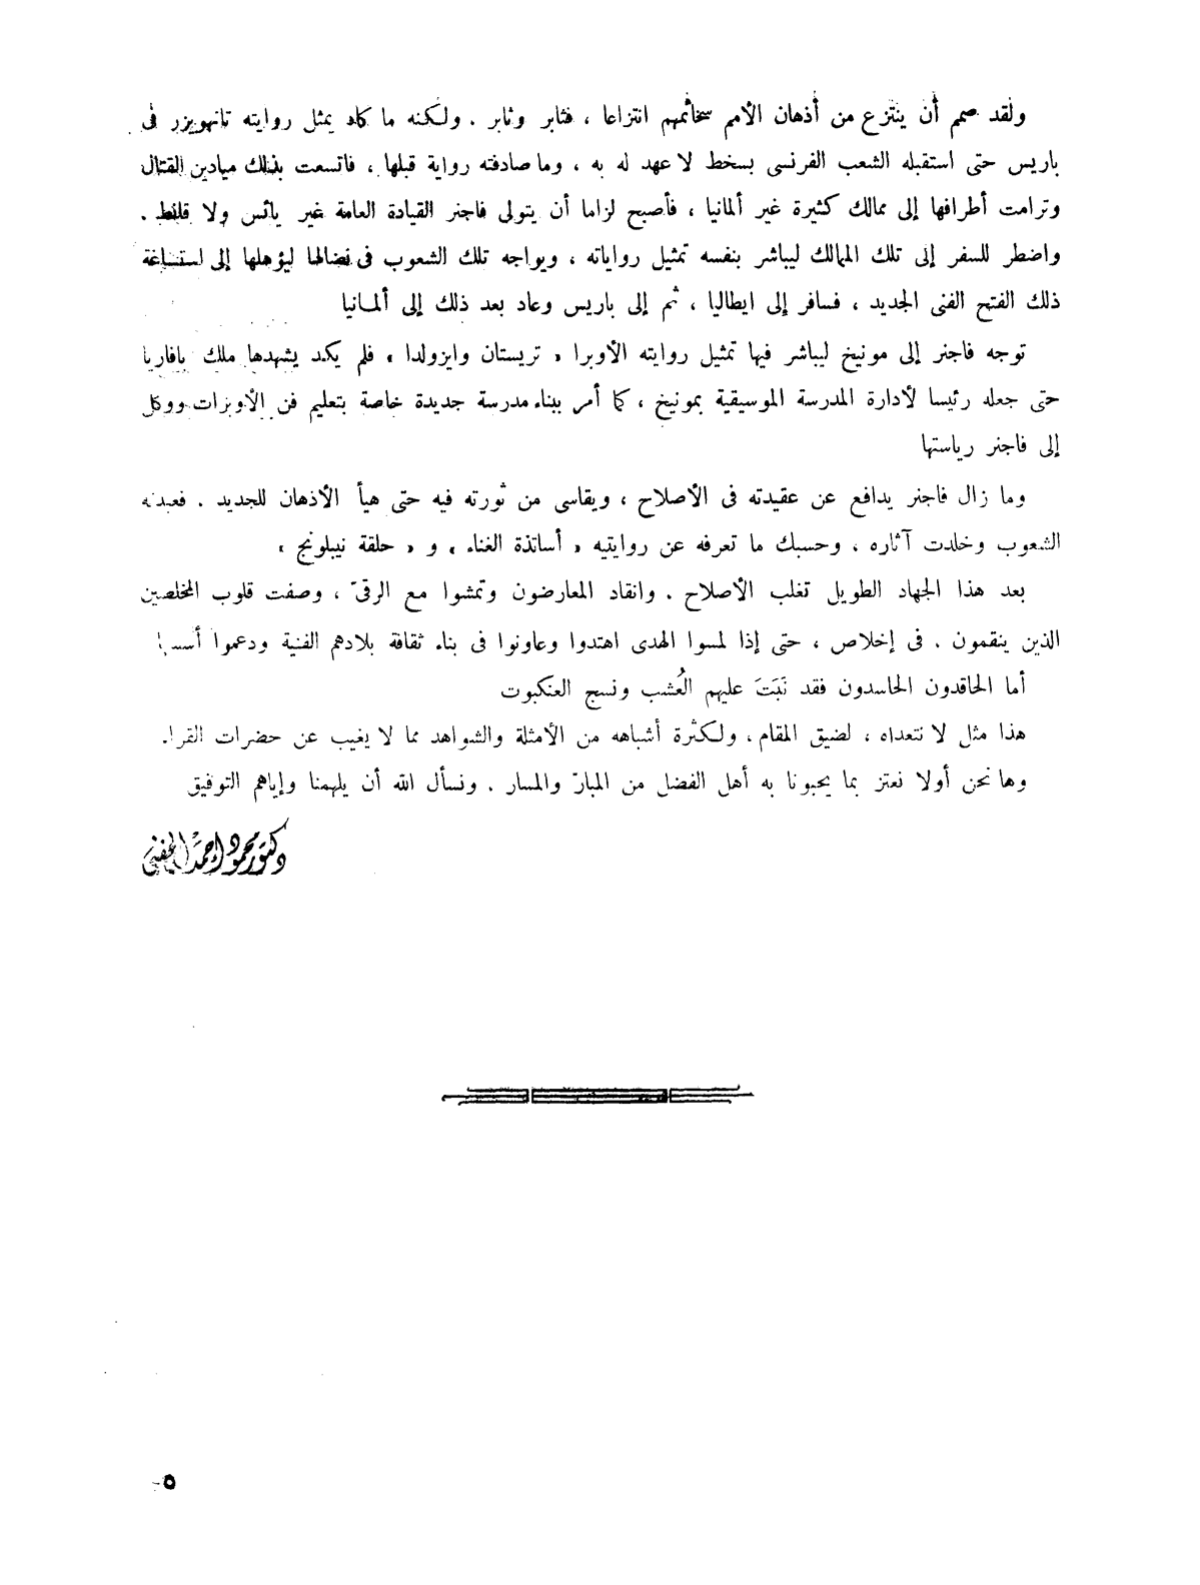 ولقد صمم أن ينتزع من أذهان الأمم سخائمهم انتزاعا ، فثابر وثابر . ولكنه ما كاد يمثل روايته تانهويزر فى
باريس حتى استقبله الشعب الفرنسى بسخط لا عهد له به ، وما صادفته رواية قبلها ، فاتسعت بذلك ميادين القتال
وترامت أطرافها إلى ممالك كثيرة غير ألمانيا ، فأصبح لزاما أن يتولى فاجنر القيادة العامة غير يائس ولا قانط .
واضطر للسفر إلى تلك الممالك ليباشر بنفسه تمثيل رواياته ، ويواجه تلك الشعوب فى نضالها ليؤهلها إلى استساغة
ذلك الفتح الفنى الجديد ، فسافر إلى ايطاليا ، ثم إلى باريس وعاد بعد ذلك إلى ألمانيا
توجه فاجنر إلى مونيخ ليباشر فيها تمثيل روايته الأوبرا « تريستان وايزولدا » فلم يكد يشهدها ملك بافاريا
حتى جعله رئيسا لأدارة المدرسة الموسيقية بمونيخ ، كما أمر ببناء مدرسة جديدة خاصة بتعليم فن الأوبرات ووكل
إلى فاجنر رياستها
وما زال فاجنر يدافع عن عقيدته فى الأصلاح ، ويقاسى من ثورته فيه حتى هيأ الأذهان للجديد . فعبدته
الشعوب وخلدت آثاره ، وحسبك ما تعرفه عن روايتيه « أساتذة الغناء » و « حلقة نيبلونج »
بعد هذا الجهاد الطويل تغلب الأصلاح . وانقاد المعارضون وتمشوا مع الرقىّ ، وصفت قلوب المخلصين
الذين ينقمون . فى إخلاص ، حتى إذا لمسوا الهدى اهتدوا وعاونوا فى بناء ثقافة بلادهم الفنية ودعموا أسسها
أما الحاقدون الحاسدون فقد نَبَتَ عليهم العُشب ونسج العنكبوت
هذا مثل لا نتعداه ، لضيق المقام ، ولكثرة أشباهه من الأمثلة والشواهد مما لا يغيب عن حضرات القراء.
وها نحن أولا نعتز بما يحبونا به أهل الفضل من المبارّ والمسار . ونسأل الله أن يلهمنا وإياهم التوفيق
دكتور محمود أحمد الحفنى
٥